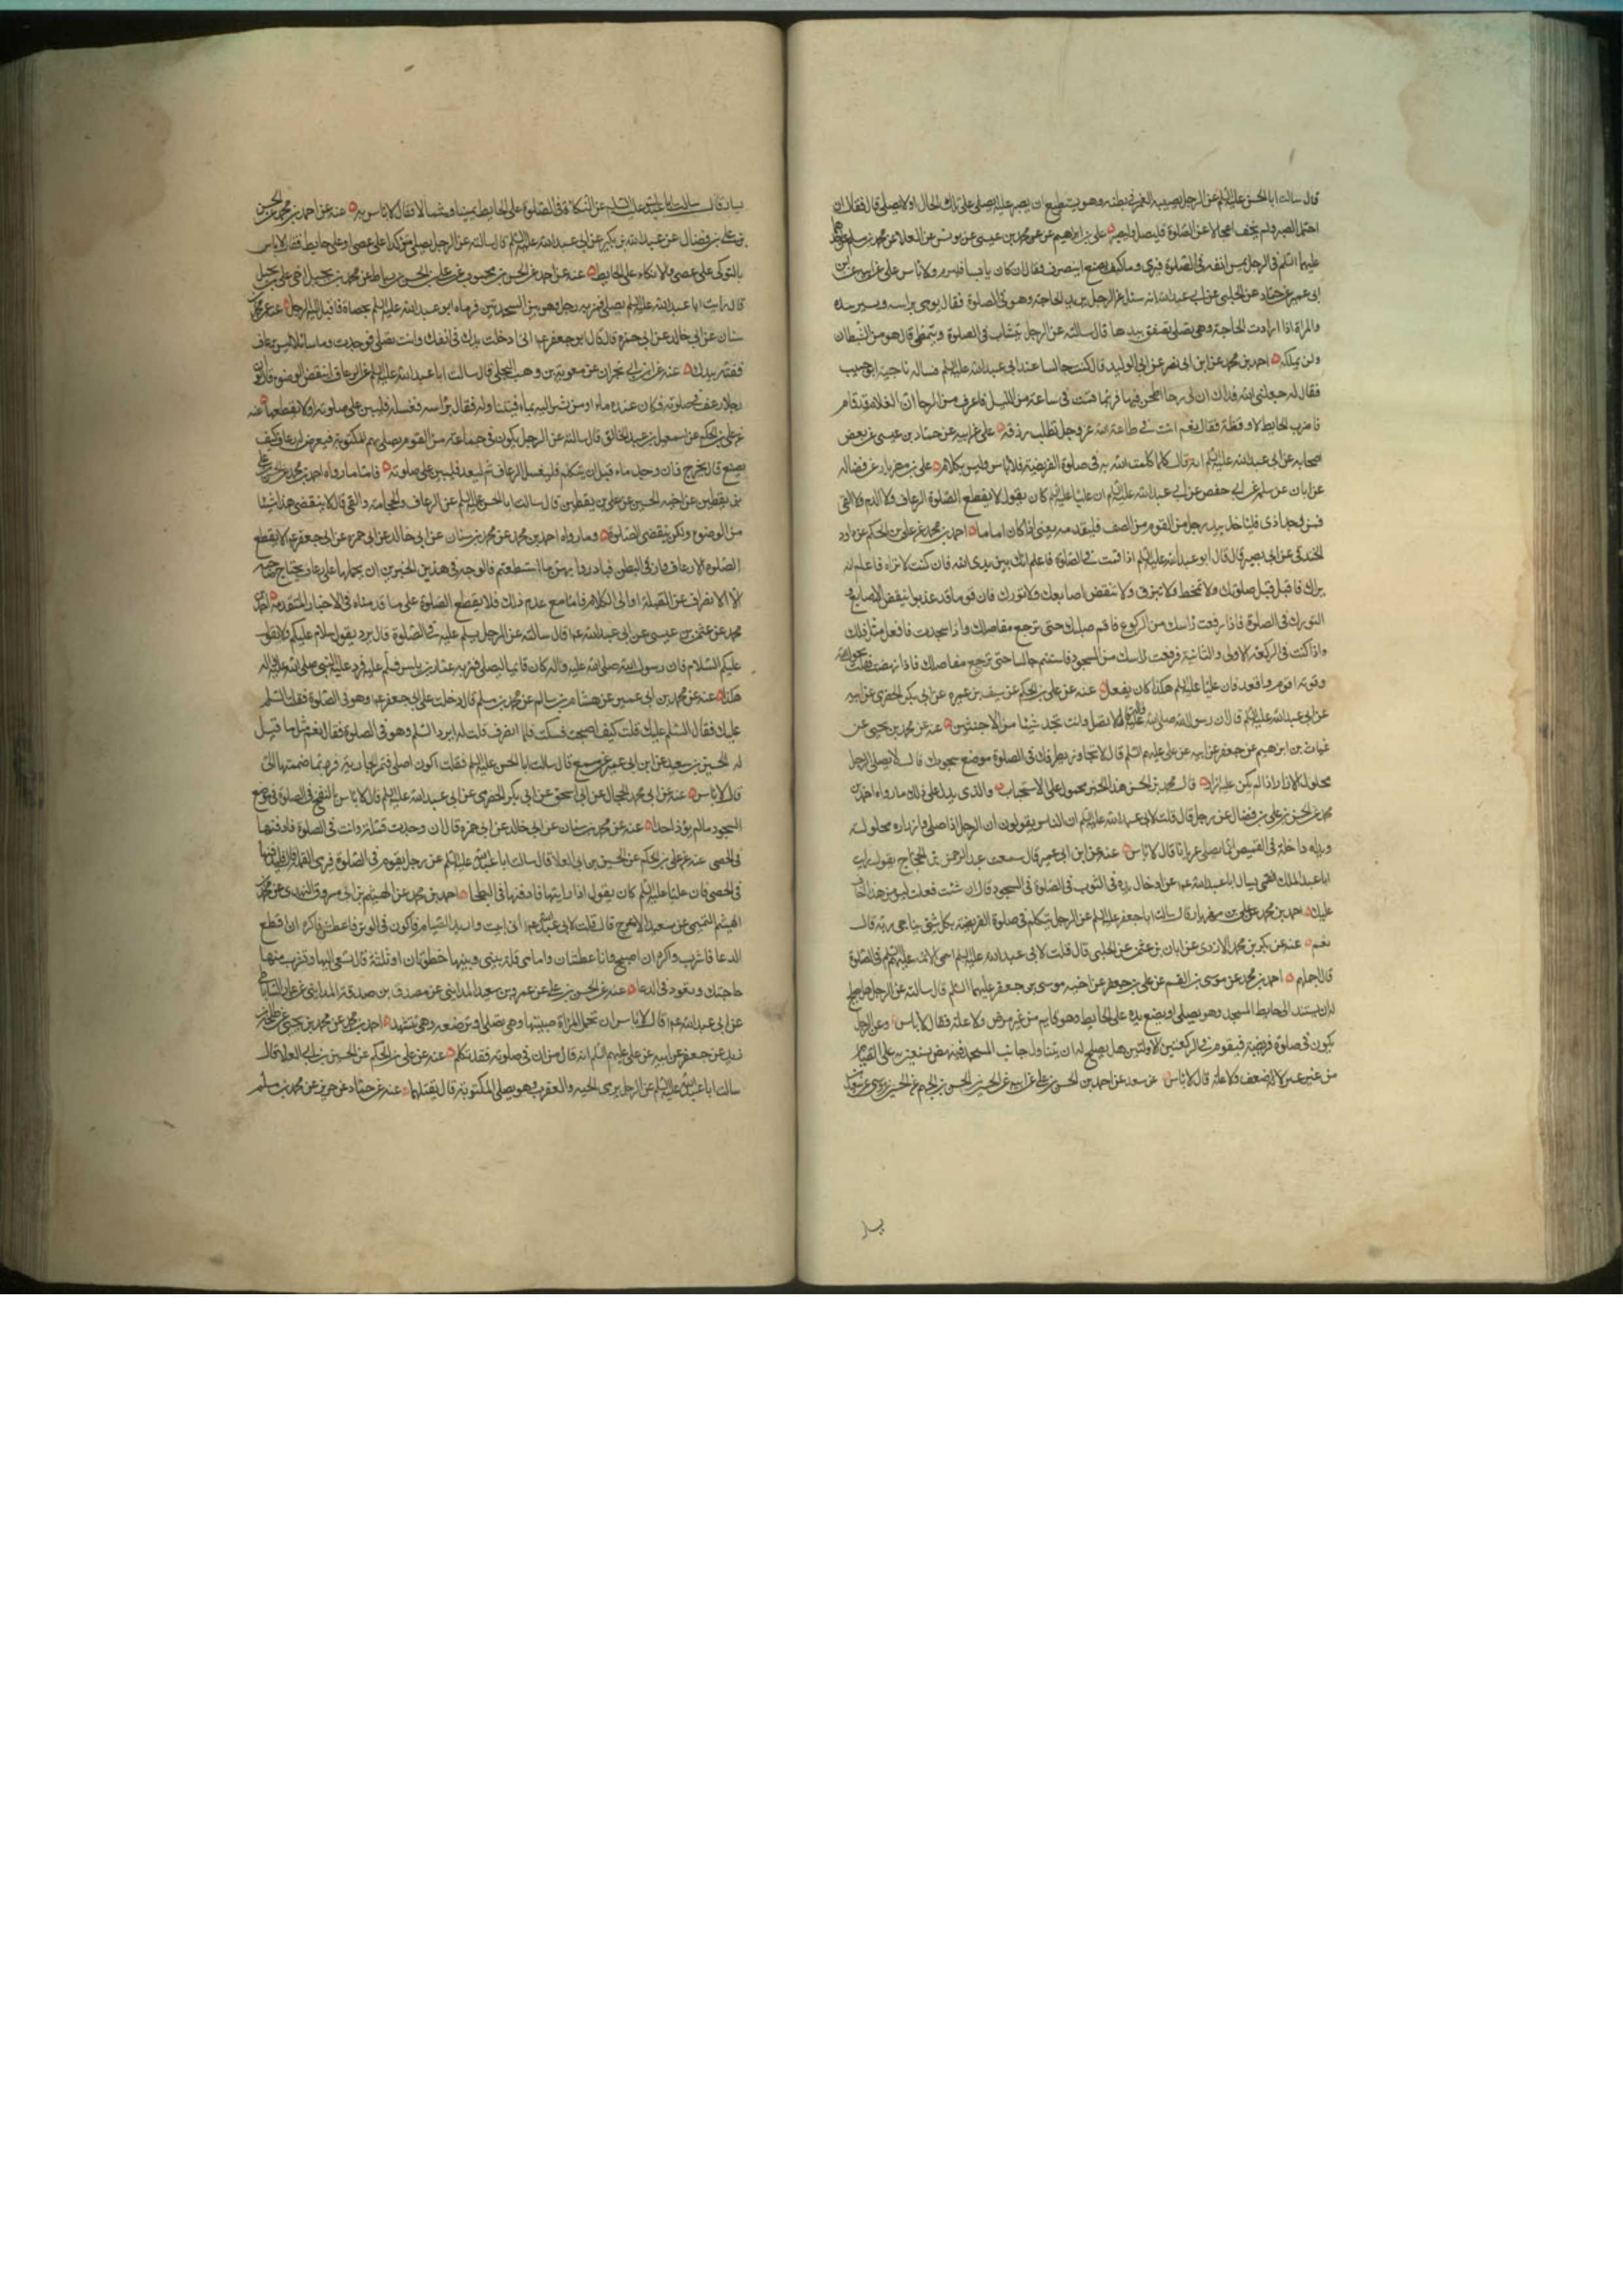 قال سالت ابا الحسن عليه السلم عن الرجل يصيبه الغمز في بطنه وهو يستطيع ان يصبر عليه ايصلي على تلك الحال اولا يصلي قال فقال ان
احتمل الصبر ولم يخف اعجالا عن الصلوة فليصل وليصبر علي بن ابراهيم عن محمد بن عيسى عن يونس عن العلا عن محمد بن مسلم عن
عليهما السلم في الرجل يمس انفه في الصلوة فيرى دما كيف يصنع اينصرف فقال ان كان يابسا فليرم به ولا باس علي عن ابيه عن ابن
ابي عمير عن حماد عن الحلبي عن ابي عبد الله انه سئل عن الرجل يريد الحاجة وهو في الصلوة فقال يومي براسه ويشير بيده
والمراة اذا ارادت الحاجة وهي تصلي تصفق بيدها قال سالته عن الرجل يتثاب في الصلوة ويتمطى قال هو من الشيطان
ولن يملكه احمد بن محمد عن ابن ابي نصر عن ابي الوليد قال كنت جالسا عند ابي عبد الله عليه السلم فساله ناجية ابو حبيب
فقال له جعلني الله فداك ان لي رحا اطحن فيها فربما قمت في ساعة من الليل فاعرف من الرحا ان الغلام قد نام
فاضرب الحايط لاوقظه فقال نعم انت في طاعة الله عز وجل تطلب رزقه علي عن ابيه عن حماد بن عيسى عن بعض
اصحابه عن ابي عبد الله عليه السلم انه قال كلما كلمت الله به في صلوة الفريضة فلا باس وليس بكلام علي بن مهزيار عن فضالة
عن ابان عن سلمة عن ابي حفص عن ابي عبد الله عليه السلم ان عليا عليه السلم كان يقول لا يقطع الصلوة الرعاف ولا الدم ولا القي
فمن وجد اذى فلياخذ بيد رجل من القوم من الصف فليقدمه يعني اذا كان اماما احمد بن محمد عن علي بن الحكم عن داود
الخندقي عن ابي بصير قال قال ابو عبد الله عليه السلم اذا قمت في الصلوة فاعلم انك بين يدي الله فان كنت لا تراه فاعلم انه
يراك فاقبل قبل صلوتك ولا تمتخط ولا تبزق ولا تنقض اصابعك ولا تورك فان قوما قد عذبوا بنقض الاصابع و
التورك في الصلوة فاذا رفعت راسك من الركوع فاقم صلبك حتى ترجع مفاصلك واذا سجدت فافعل مثل ذلك
واذا كنت في الركعة الاولى والثانية فرفعت راسك من السجود فاستتم جالسا حتى ترجع مفاصلك فاذا نهضت فقلت بحول الله
وقوته اقوم واقعد فان عليا عليه السلم هكذا كان يفعل عنه عن علي بن الحكم عن سيف بن عميرة عن ابي بكر الحضرمي عن ابيه
عن ابي عبد الله عليه السلم قال ان رسول الله صلى الله عليه واله قال لا تصل وانت تجد شيئا من الاخبثين عنه عن محمد بن يحيى عن
غياث بن ابرهيم عن جعفر عن ابيه عن علي عليهم السلم قال لا تجاوز بطرفك في الصلوة موضع سجودك قال لا يصلي الرجل
محلول الازار اذا لم يكن عليه ازار قال محمد بن الحسن هذا الخبر محمول على الاستحباب والذي يدل على ذلك ما رواه احمد بن
محمد عن الحسن بن علي بن فضال عن رجل قال قلت لابي عبد الله عليه السلم ان الناس يقولون ان الرجل اذا صلى وازراره محلولة
ويداه داخلة في القميص انما يصلي عريانا قال لا باس عنه عن ابن ابي عمير قال سمعت عبد الرحمن بن الحجاج يقول رايت
ابا عبد الملك القمي يسال ابا عبد الله عم عن ادخال يده في الثوب في الصلوة في السجود قال ان شئت فعلت ليس من هذا اخاف
عليك احمد بن محمد عن علي بن مهزيار قال سالت ابا جعفر عليه السلم عن الرجل يتكلم في صلوة الفريضة بكل شئ يناجي ربه قال
نعم عنه عن بكر بن محمد الازدي عن ابان بن عثمن عن الحلبي قال قلت لابي عبد الله عليه السلم اسمي الائمة عليهم السلم في الصلوة
قال اجملهم احمد بن محمد عن موسى بن القسم عن علي بن جعفر عن اخيه موسى بن جعفر عليهما السلم قال سالته عن الرجل هل يصلح
له ان يستند الى حايط المسجد وهو يصلي او يضع يده على الحايط وهو قايم من غير مرض ولا علة فقال لا باس وعن الرجل
يكون في صلوة فريضة فيقوم في الركعتين الاولتين هل يصلح له ان يتناول جانب المسجد فينهض يستعين به على القيام
من غير ضعف ولا علة قال لا باس عن سعد عن احمد بن الحسن بن علي عن ابيه عن
يسار
يسار قال سالت ابا عبد الله عليه السلم عن التكاة في الصلوة على الحايط يمينا وشمالا فقال لا باس به عنه عن احمد بن محمد عن الحسن
بن علي بن فضال عن عبد الله بن بكير عن ابي عبد الله عليه السلم قال سالته عن الرجل يصلي متوكئا على عصى او على حايط فقال لا باس
بالتوكي على عصى والاتكاء على الحايط عنه عن احمد عن الحسن بن محبوب عن علي بن الحسن بن رباط عن محمد بن بجيل اخي علي بن بجيل
قال رايت ابا عبد الله عليه السلم يصلي فمر به رجل وهو بين السجدتين فرماه ابو عبد الله عليه السلم بحصاة فاقبل اليه الرجل عنه عن محمد بن
سنان عن ابي خالد عن ابي حمزة قال قال ابو جعفر عم اذا دخلت يدك في انفك وانت تصلي فوجدت دما سائلا ليس برعاف
ففته بيدك عنه عن ابن ابي نجران عن معوية بن وهب البجلي قال سالت ابا عبد الله عليه السلم عن الرعاف اينقض الوضوء قال لو ان
رجلا رعف في صلوته فكان عنده ماء او من يشير اليه بماء فيتناوله فقال براسه فغسله فليبن على صلوته ولا يقطعها عنه
عن علي بن الحكم عن اسمعيل بن عبد الخالق قال سالته عن الرجل يكون في جماعة من القوم يصلي بهم المكتوبة فيعرض له رعاف كيف
يصنع قال يخرج فان وجد ماء قبل ان يتكلم فليغسل الرعاف ثم ليعد فليبن على صلوته فاما ما رواه احمد بن محمد عن الحسن بن علي
بن يقطين عن اخيه الحسين عن علي بن يقطين قال سالت ابا الحسن عليه السلم عن الرعاف والحجامة والقي قال لا ينقض هذا شيئا
من الوضوء ولكن ينقض الصلوة وما رواه احمد بن محمد عن محمد بن سنان عن ابي خالد عن ابي حمزة عن ابي جعفر عم لا يقطع
الصلوة الا رعاف واز في البطن فبادروا بهن ما استطعتم فالوجه في هذين الخبرين ان يحملها على رعاف يحتاج صاحبه
الا الانصراف عن القبلة او الى الكلام فاما مع عدم ذلك فلا يقطع الصلوة على ما قدمناه في الاخبار المتقدمة احمد بن
محمد عن عثمن بن عيسى عن ابي عبد الله عم قال سالته عن الرجل يسلم عليه في الصلوة قال يرد يقول سلام عليكم ولا يقول
عليكم السلام فان رسول الله صلى الله عليه واله كان قايما يصلي فمر به عمار بن ياسر فسلم عليه فرد عليه النبي صلى الله عليه واله
هكذا عنه عن محمد بن ابي عمير عن هشام بن سالم عن محمد بن مسلم قال دخلت على ابي جعفر عم وهو في الصلوة فقلت السلم
عليك فقال السلم عليك قلت كيف اصبحت فسكت فلما انصرف قلت له ايرد السلم وهو في الصلوة فقال نعم مثل ما قيل
له الحسين بن سعيد عن ابن ابي عمير عن مسمع قال سالت ابا الحسن عليه السلم فقلت اكون اصلي فتمر الجارية فربما ضممتها الي
قال لا باس عنه عن ابي محمد الحجال عن ابي اسحق عن ابي بكر الحضرمي عن ابي عبد الله عليه السلم قال لا باس بالنفخ في الصلوة في موضع
السجود ما لم يؤذ احدا عنه عن محمد بن سنان عن ابي خالد عن ابي حمزة قال ان وجدت قملة وانت في الصلوة فادفنها
في الحصى عنه عن علي بن الحكم عن الحسين بن ابي العلا قال سالت ابا عبد الله عليه السلم عن رجل يقوم في الصلوة فيرى القملة قال فليدفنها
في الحصى فان عليا عليه السلم كان يقول اذا رايتها فادفنها في البطحا احمد بن محمد عن الهيثم بن ابي مسروق النهدي عن محمد بن
الهيثم التميمي عن سعيد الاعرج قال قلت لابي عبد الله عم اني ابيت واريد الصيام فاكون في الوتر فاعطش فاكره ان اقطع
الدعا فاشرب واكره ان اصبح وانا عطشان وامامي قلة بيني وبينها خطوتان او ثلثة قال تسعى اليها وتشرب منها
حاجتك وتعود في الدعا عنه عن الحسن بن علي عن عمرو بن سعيد المدايني عن مصدق بن صدقة المدايني عن عمار الساباطي
عن ابي عبد الله عم قال لا باس ان تحمل المراة صبيتها وهي تصلي او ترضعه وهي تتشهد احمد بن محمد عن محمد بن يحيى عن طلحة بن
زيد عن جعفر عن ابيه عن علي عليهم السلم انه قال من ان في صلوته فقد تكلم عنه عن علي بن الحكم عن الحسين بن ابي العلا قال
سالت ابا عبد الله عليه السلم عن الرجل يرى الحية والعقرب وهو يصلي المكتوبة قال يقتلهما عنه عن حماد عن حريز عن محمد بن مسلم